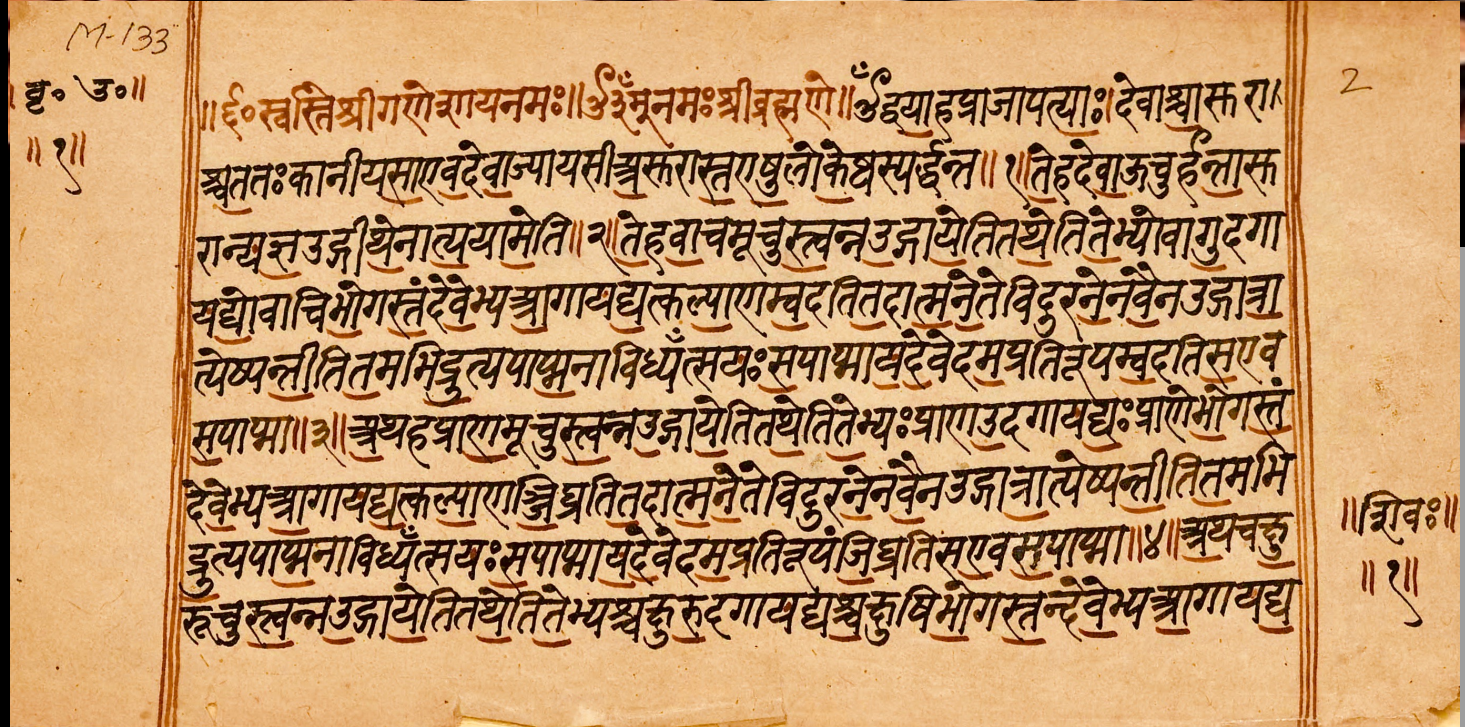 M-133
बृ० उ०॥
॥१॥
2
॥र्द० स्वस्तिश्रीगणेशायनमः॥ ॐनमःश्रीब्रह्मणे॥ ॐद्वयाहप्राजापत्याः।देवाश्चासुरा
श्चततःकानीयसाएवदेवाज्यायसीअसुरास्तएषुलोकेष्वस्पर्द्धन्त॥१॥तेहदेवाऊचुर्हन्तासु
रान्यज्ञउद्गीथेनात्ययामेति॥२॥तेहवाचमूचुस्त्वन्नउद्गायेतितथेतितेभ्योवागुदगा
यद्योवाचिभोगस्तंदेवेभ्यआगायद्यत्कल्याणम्वदतितदात्मनेतेविदुरनेनवैनउद्गात्रा
त्येष्यन्तीतितमभिद्रुत्यपाप्मनाविध्यँत्सयःसपाप्मायदेवेदमप्रतिरूपम्वदतिसएव
सपाप्मा॥३॥अथहप्राणमूचुस्त्वन्नउद्गायेतितथेतितेभ्यःप्राणउदगायद्यःप्राणेभोगस्तं
देवेभ्यआगायद्यत्कल्याणञ्जिघ्रतितदात्मनेतेविदुरनेनवैनउद्गात्रात्येष्यन्तीतितमभि
द्रुत्यपाप्मनाविध्यँत्सयःसपाप्मायदेवेदमप्रतिरूपंजिघ्रतिसएवसपाप्मा॥४॥अथचक्षु
रूचुस्त्वन्नउद्गायेतितथेतितेभ्यश्चक्षुरुदगायद्यश्चक्षुषिभोगस्तन्देवेभ्यआगायद्य
॥शिवः॥
॥१॥